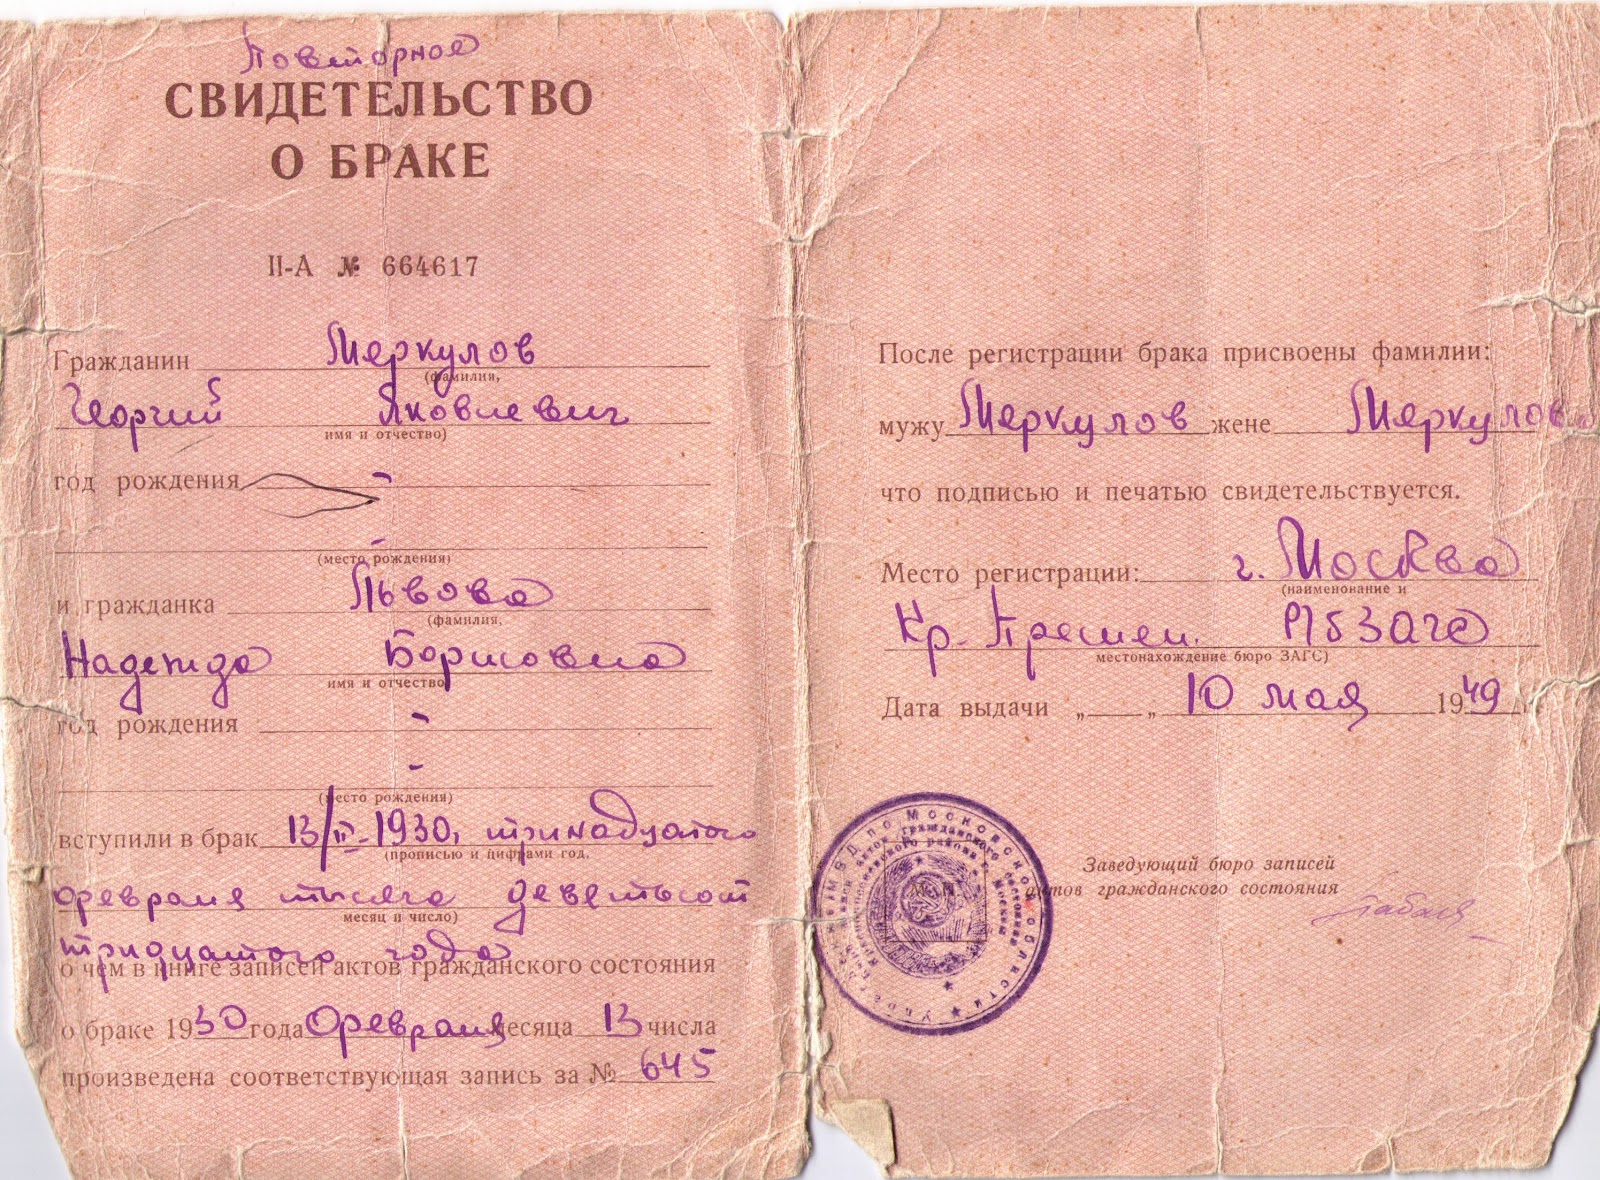 Повторное
СВИДЕТЕЛЬСТВО
О БРАКЕ
II-А № 664617
Гражданин Меркулов
(фамилия,
Георгий Яковлевич
имя и отчество)
год рождения -
-
(место рождения)
и гражданка Львова
(фамилия,
Надежда Борисовна
имя и отчество
год рождения -
-
(место рождения)
вступили в брак 13/II-1930, тринадцатого
(прописью и цифрами год,
февраля тысяча девятьсот
месяц и число)
тридцатого года
о чем в книге записей актов гражданского состояния
о браке 1930 года Февраля месяца 13 числа
произведена соответствующая запись за № 645
После регистрации брака присвоены фамилии:
мужу Меркулов жене Меркулова
что подписью и печатью свидетельствуется.
Место регистрации: г. Москва
(наименование и
Кр. Преснен. РБЗАГС
местонахождение бюро ЗАГС)
Дата выдачи „ „ 10 мая 1949 г.
Заведующий бюро записей
актов гражданского состояния
М. П.
по Московской области
актов гражданского состояния
района г. Москвы